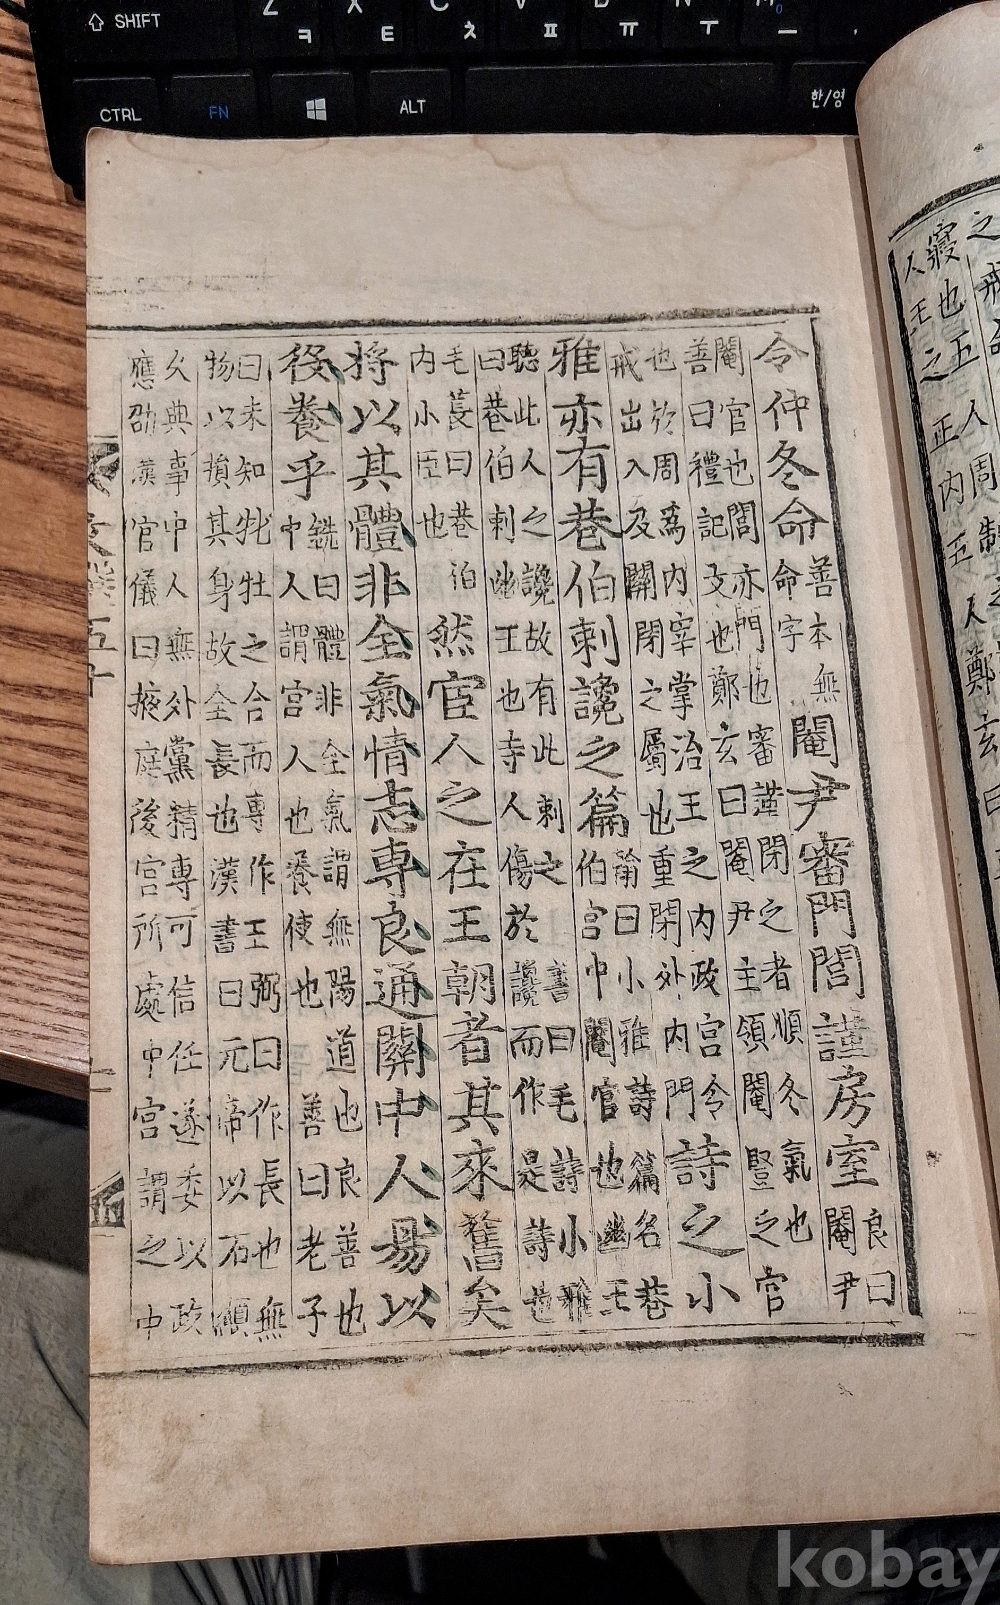 寢也
王之正内五人鄭玄曰
令仲冬命善本無
命字
閹尹審門閭謹房室良曰
閹尹
閹官也閭亦門也審謹閉之者順冬氣也
善曰禮記文也鄭玄曰閹尹主領閹豎之官
也於周爲内宰掌治王之内政宮令
戒出入及開閉之屬也重閉外内門
詩之小
雅亦有巷伯刺讒之篇翰曰小雅詩篇名巷
伯宮中閹官也幽王
聽此人之讒故有此刺之書曰毛詩小雅
曰巷伯刺幽王也寺人傷於讒而作是詩也
毛萇曰巷伯
内小臣也
然宦人之在王朝者其來舊矣
將以其體非全氣情志專良通關中人易以
役養乎銑曰體非全氣謂無陽道也良善也
中人謂宮人也養使也善曰老子
曰未知牝牡之合而專作王弼曰作長也無
物以損其身故全長也漢書曰元帝以石顯
久典事中人無外黨精專可信任遂委以政
應劭漢官儀曰掖庭後宮所處中宮謂之中
文選五十
SHIFT
Z X C V B N M
ㅋ ㅌ ㅊ ㅍ ㅠ ㅜ ㅡ
CTRL FN ALT 한/영
kobay